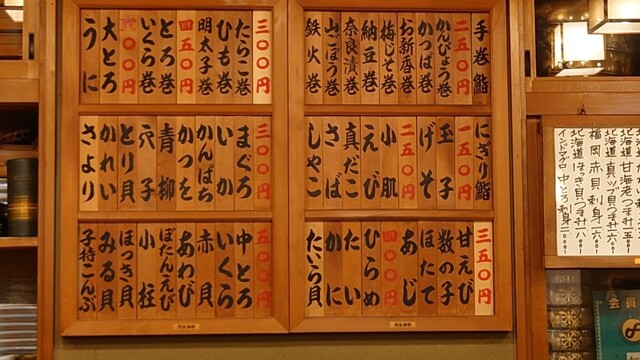 手巻鮨
二五〇円
かんぴょう巻
かっぱ巻
お新香巻
梅じそ巻
納豆巻
奈良漬巻
山ごぼう巻
鉄火巻
三〇〇円
たらこ巻
ひも巻
明太子巻
四五〇円
とろ巻
いくら巻
六〇〇円
大とろ
うに
にぎり鮨
一五〇円
玉子
げそ
二五〇円
小肌
えび
真だこ
さば
しゃこ
三〇〇円
まぐろ
いか
かんぱち
かつを
青柳
穴子
とり貝
かれい
さより
三五〇円
甘えび
数の子
ほたて
あじ
四〇〇円
ひらめ
たい
かに
たいら貝
五〇〇円
中とろ
いくら
赤貝
あわび
ぼたんえび
小柱
ほっき貝
みる貝
子持こんぶ
北海道
北海道
福岡 赤貝 刺身
北海道 ほっき貝
インドマグロ 中とろ 刺身